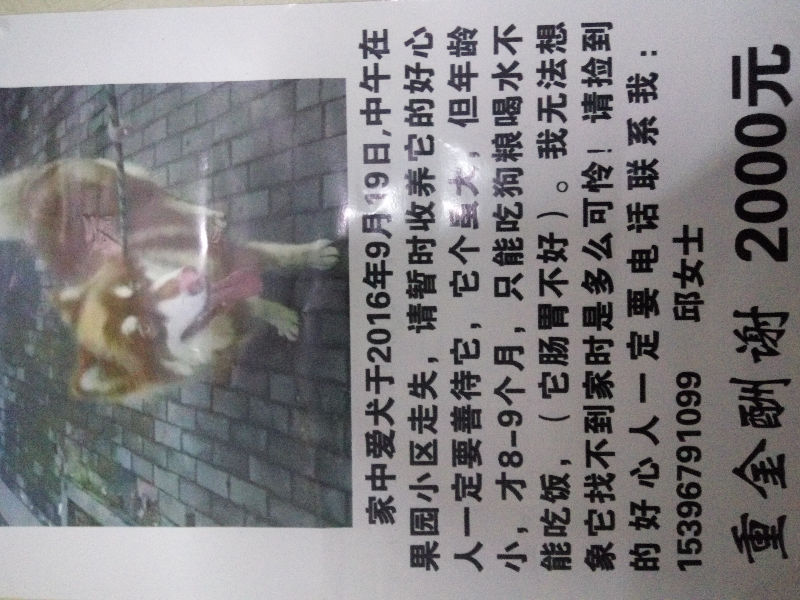 家中爱犬于2016年9月19日,中午在
果园小区走失，请暂时收养它的好心
人一定要善待它，它个虽大，但年龄
小，才8-9个月，只能吃狗粮喝水不
能吃饭，（它肠胃不好）。我无法想
象它找不到家时是多么可怜！请捡到
的好心人一定要电话联系我：
15396791099 邱女士
重金酬谢 2000元